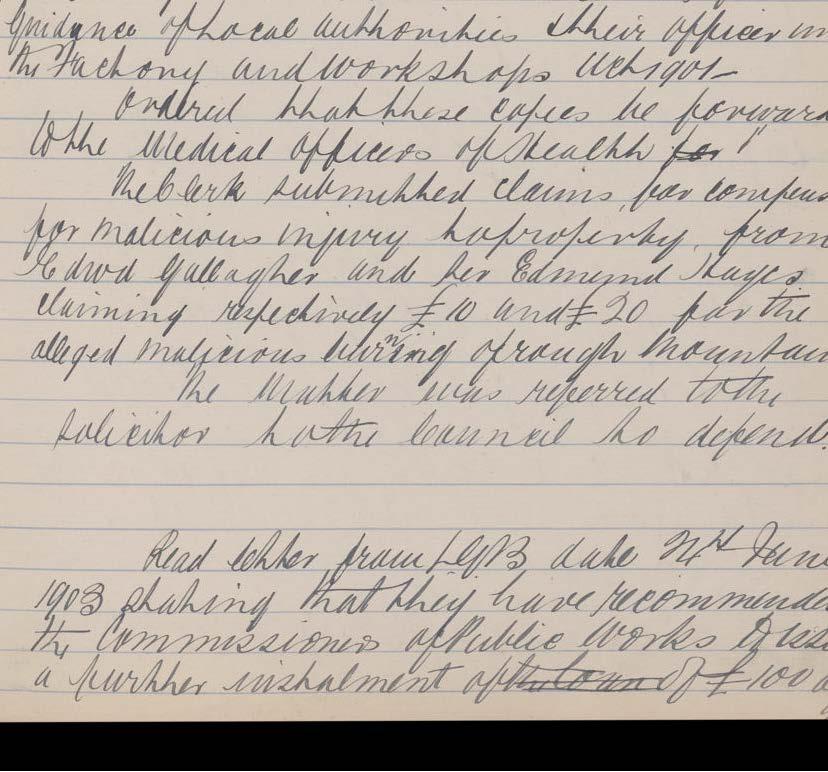 Guidance of Local Authorities & their officer in
the Factory and Workshops Act 1901-
Ordered that these copies be forward
to the Medical Officers of Health for "
The Clerk submitted claims for compens
for malicious injury to property, from
Edwd Gallagher and Edmund Hayes
claiming respectively £10 and £20 for the
alleged malicious burning of rough Mountain
The Matter was referred to the
Solicitor to the Council to defend.
Read letter from LGB date June
1903 stating that they have recommended
the Commissioners of Public Works to iss
a further instalment of the loan of £100